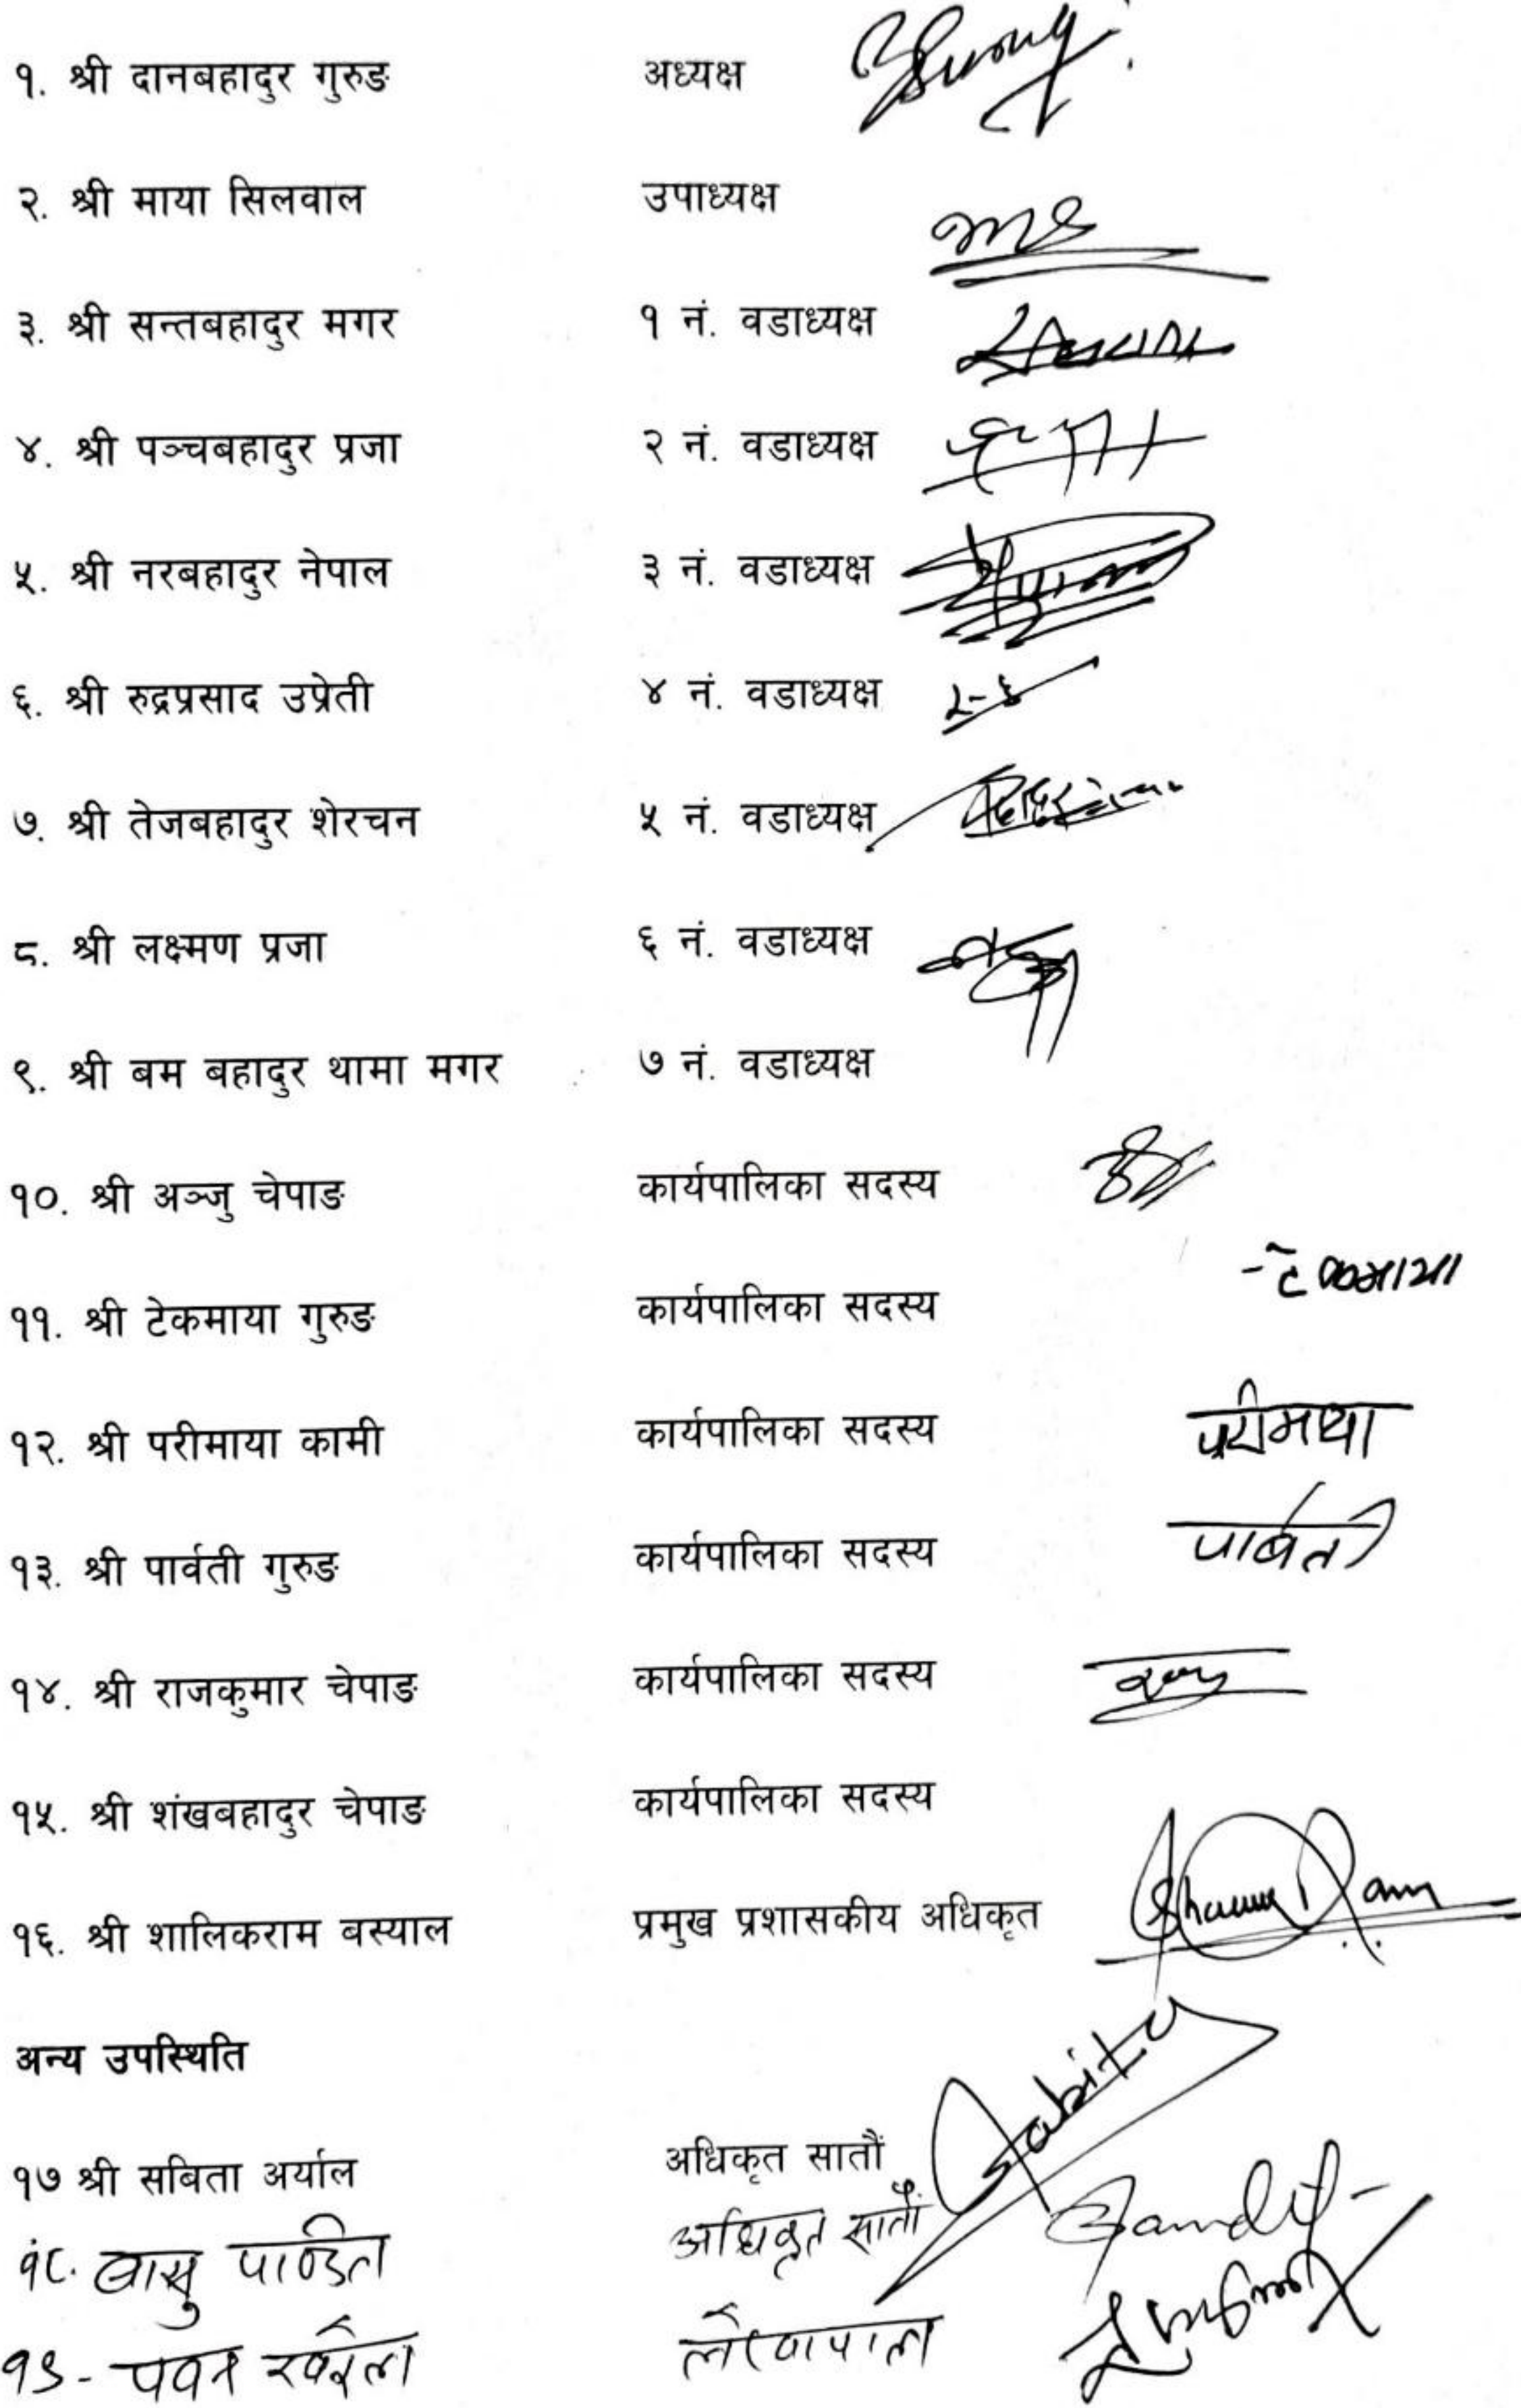 १. श्री दानबहादुर गुरुङ अध्यक्ष
२. श्री माया सिलवाल उपाध्यक्ष
३. श्री सन्तबहादुर मगर १ नं. वडाध्यक्ष
४. श्री पञ्चबहादुर प्रजा २ नं. वडाध्यक्ष
५. श्री नरबहादुर नेपाल ३ नं. वडाध्यक्ष
६. श्री रुद्रप्रसाद उप्रेती ४ नं. वडाध्यक्ष
७. श्री तेजबहादुर शेरचन ५ नं. वडाध्यक्ष
८. श्री लक्ष्मण प्रजा ६ नं. वडाध्यक्ष
९. श्री बम बहादुर थामा मगर ७ नं. वडाध्यक्ष
१०. श्री अञ्जु चेपाङ कार्यपालिका सदस्य
११. श्री टेकमाया गुरुङ कार्यपालिका सदस्य टेकमाया
१२. श्री परीमाया कामी कार्यपालिका सदस्य परीमाया
१३. श्री पार्वती गुरुङ कार्यपालिका सदस्य पार्बती
१४. श्री राजकुमार चेपाङ कार्यपालिका सदस्य
१५. श्री शंखबहादुर चेपाङ कार्यपालिका सदस्य
१६. श्री शालिकराम बस्याल प्रमुख प्रशासकीय अधिकृत
अन्य उपस्थिति
१७ श्री सबिता अर्याल अधिकृत सातौं Sabita
१८. बासु पाण्डित अधिकृत सातौं Pandit
१९- पवन लेखापाल